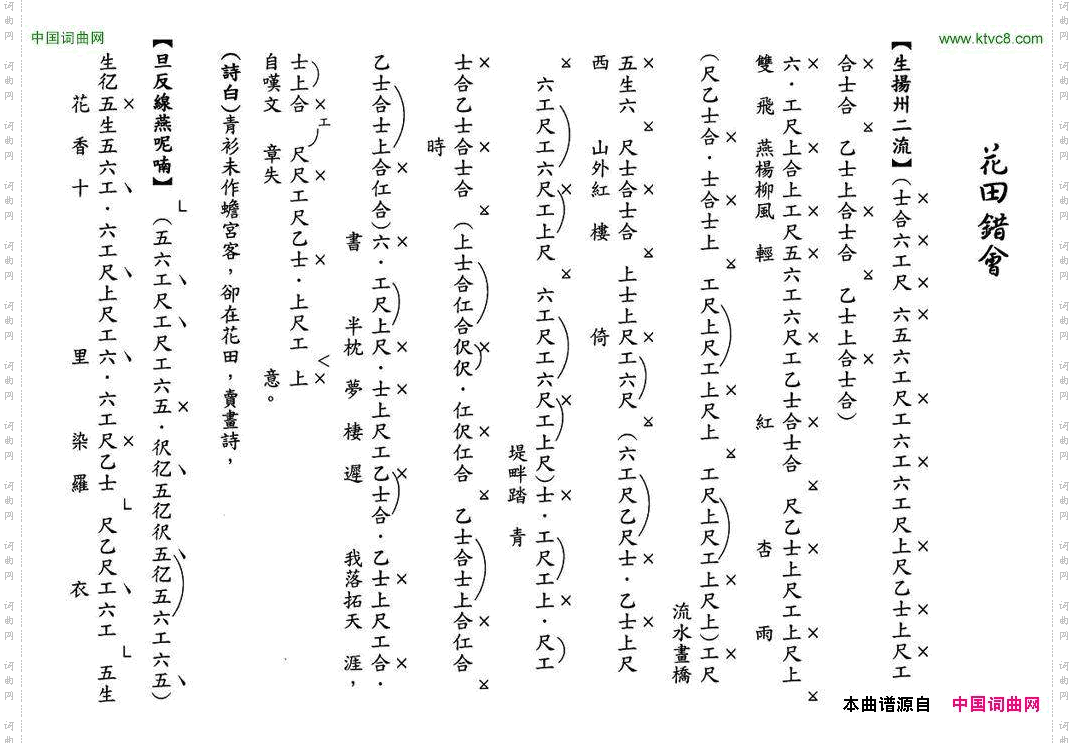 中国词曲网
www.ktvc8.com
花田錯會
【生揚州二流】（士合六工尺 六五六工尺工六工六工尺上尺乙士上尺工
合士合 乙士上合士合 乙士上合士合）
六·工尺上合上工尺五六工六尺工乙士合士合 尺乙士上尺工上尺上
雙飛燕楊柳風輕 紅 杏 雨
（尺乙士合·士合士上 工尺上尺工上尺上 工尺上尺工上尺上）工尺
流水畫橋
五生六 尺士合士合 上士上尺工六尺（六工尺乙尺士·乙士上尺
西 山外紅樓 倚
六工尺工六尺工上尺 六工尺工六尺工上尺）士·工尺工上·尺工
堤畔踏青
士合乙士合士合（上士合仜合伬伬·仜伬仜合 乙士合士上合仜合
時
乙士合士上合仜合）六·工尺上尺·士上尺工乙士合·乙士上尺工合·
書 半枕夢棲遲 我落拓天涯，
士上合 工 尺尺工尺乙士·上尺工 上
自嘆文 章失 意。
（詩白）青衫未作蟾宮客，卻在花田，賣畫詩，
【旦反線燕呢喃】（五六工尺工尺工六五·伬亿五亿伬五亿五六工六五）
生亿五生五六工·六工尺上尺工六·六工尺乙士 尺乙尺工六工 五生
花香十 里 染羅 衣
本曲谱源自 中国词曲网